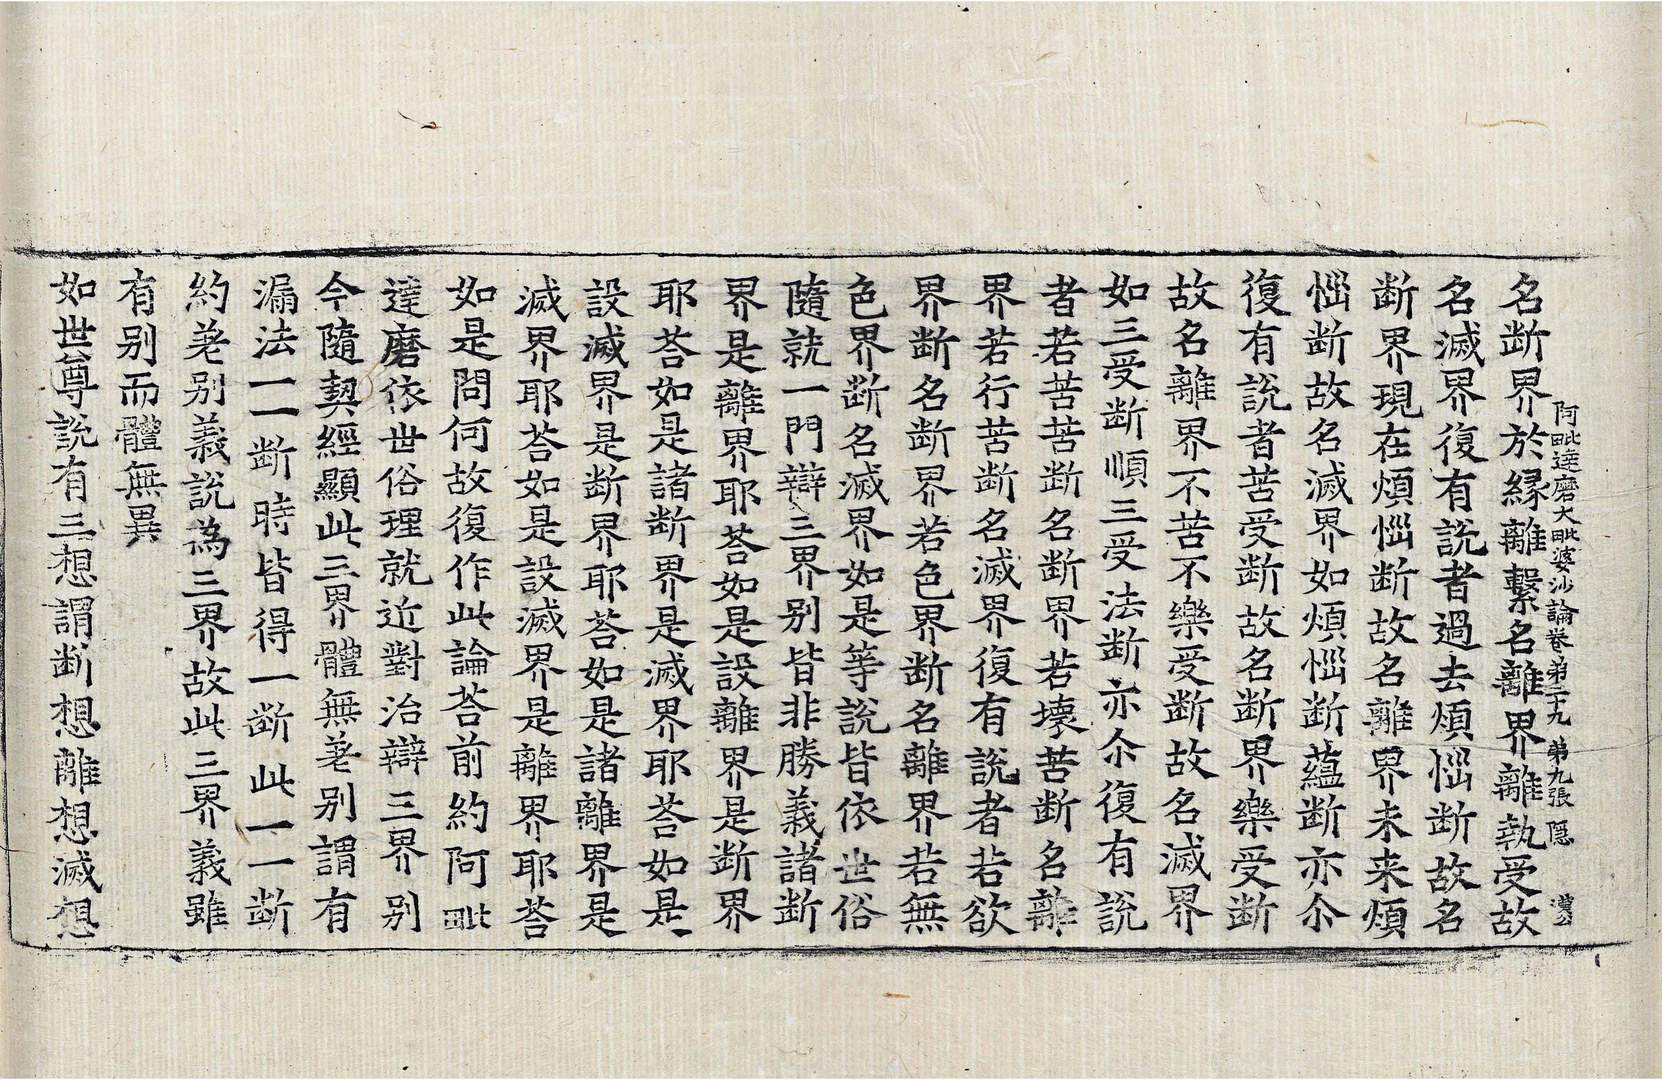 阿毗達磨大毗婆沙論卷第二十九　第九張　隱
名斷界於緣離繫名離界離執受故
名滅界復有說者過去煩惱斷故名
斷界現在煩惱斷故名離界未來煩
惱斷故名滅界如煩惱斷蘊斷亦尒
復有說者苦受斷故名斷界樂受斷
故名離界不苦不樂受斷故名滅界
如三受斷順三受法斷亦尒復有說
者若苦苦斷名斷界若壞苦斷名離
界若行苦斷名滅界復有說者若欲
界斷名斷界若色界斷名離界若無
色界斷名滅界如是等說皆依世俗
隨就一門辯三界别皆非勝義諸斷
界是離界耶荅如是設離界是斷界
耶荅如是諸斷界是滅界耶荅如是
設滅界是斷界耶荅如是諸離界是
滅界耶荅如是設滅界是離界耶荅
如是問何故復作此論荅前約阿毗
達磨依世俗理就近對治辯三界别
今隨契經顯此三界體無差别謂有
漏法一一斷時皆得一斷此一一斷
約差别義說為三界故此三界義雖
有别而體無異
如世尊說有三想謂斷想離想滅想